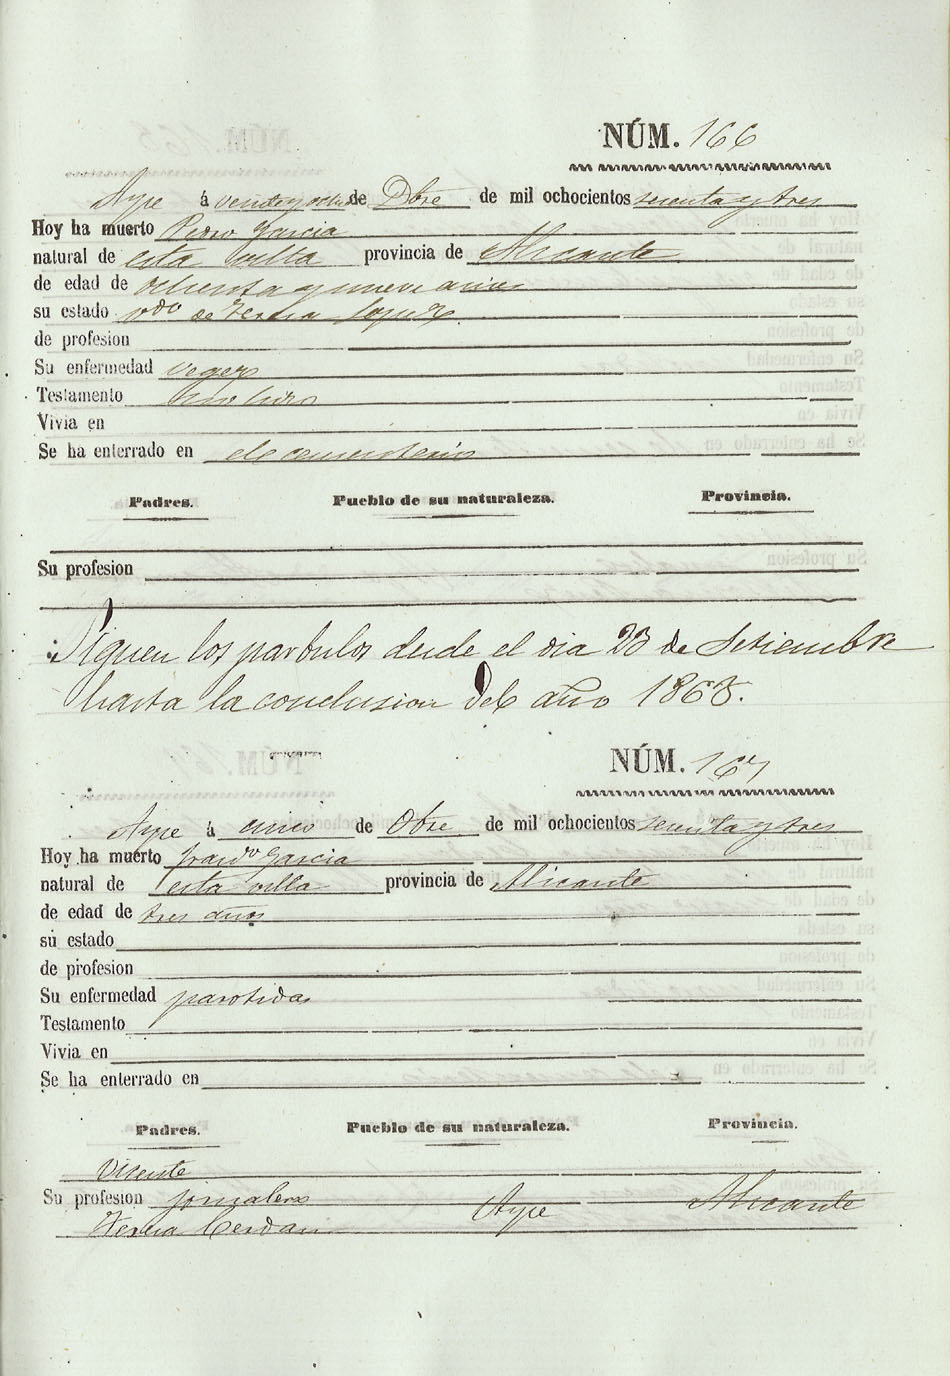 NÚM. 166
Aspe á veinte y ocho de Dbre de mil ochocientos sesenta y tres
Hoy ha muerto Pedro Garcia
natural de esta villa provincia de Alicante
de edad de ochenta y nueve años
su estado vdo de Teresa Lopez
de profesion
Su enfermedad vegez
Testamento no hizo
Vivia en
Se ha enterrado en el cementerio
Padres. Pueblo de su naturaleza. Provincia.
Su profesion
Siguen los parbulos desde el dia 23 de Setiembre
hasta la conclusion del año 1863.
NÚM. 167
Aspe á cinco de Obre de mil ochocientos sesenta y tres
Hoy ha muerto Garcia
natural de esta villa provincia de Alicante
de edad de tres años
su estado
de profesion
Su enfermedad parotidas
Testamento
Vivia en
Se ha enterrado en
Padres. Pueblo de su naturaleza. Provincia.
Vicente
Su profesion jornalero Aspe Alicante
Teresa Cerdan